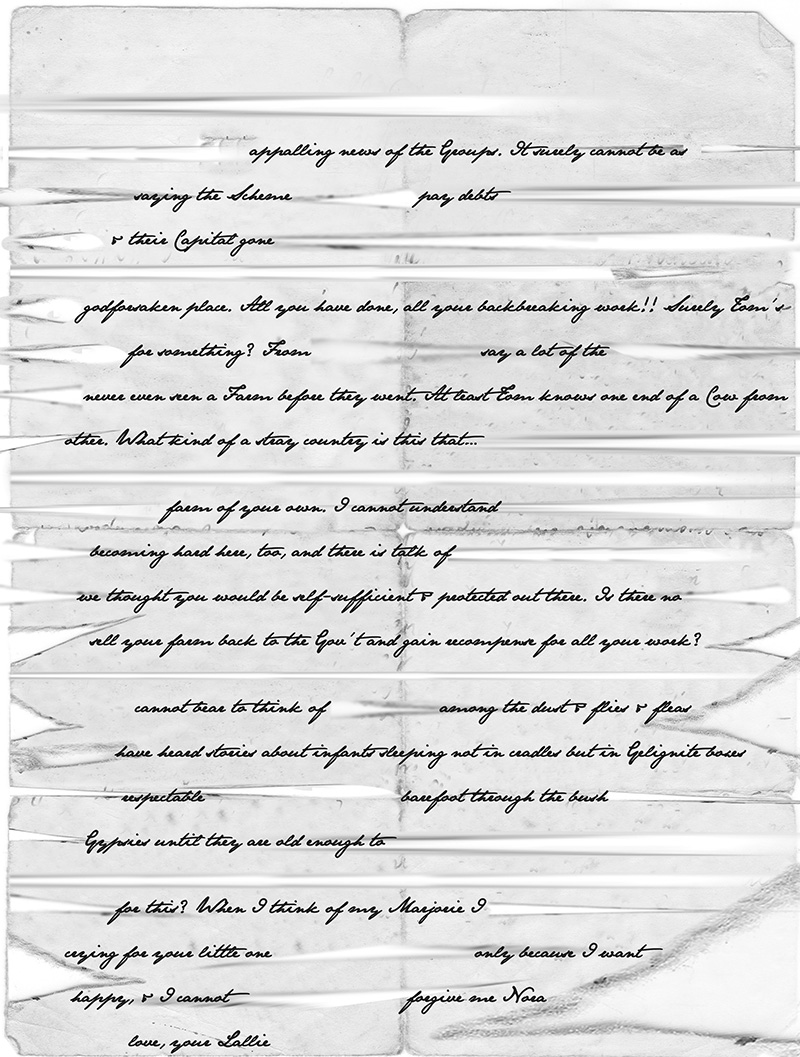 appalling news of the Groups. It surely cannot be as
saying the Scheme pay debts
& their Capital gone
godforsaken place. All you have done, all your backbreaking work!! Surely Tom's
for something? From say a lot of the
never even seen a Farm before they went. At least Tom knows one end of a Cow from
other. What kind of a stray country is this that...
farm of your own. I cannot understand
becoming hard here, too, and there is talk of
we thought you would be self-sufficient & protected out there. Is there no
sell your farm back to the Gov't and gain recompense for all your work?
cannot bear to think of among the dust & flies & fleas
have heard stories about infants sleeping not in cradles but in Gelignite boxes
respectable barefoot through the bush
Gypsies until they are old enough to
for this? When I think of my Marjorie I
crying for your little one only because I want
happy, & I cannot forgive me Nora
love, your Lallie